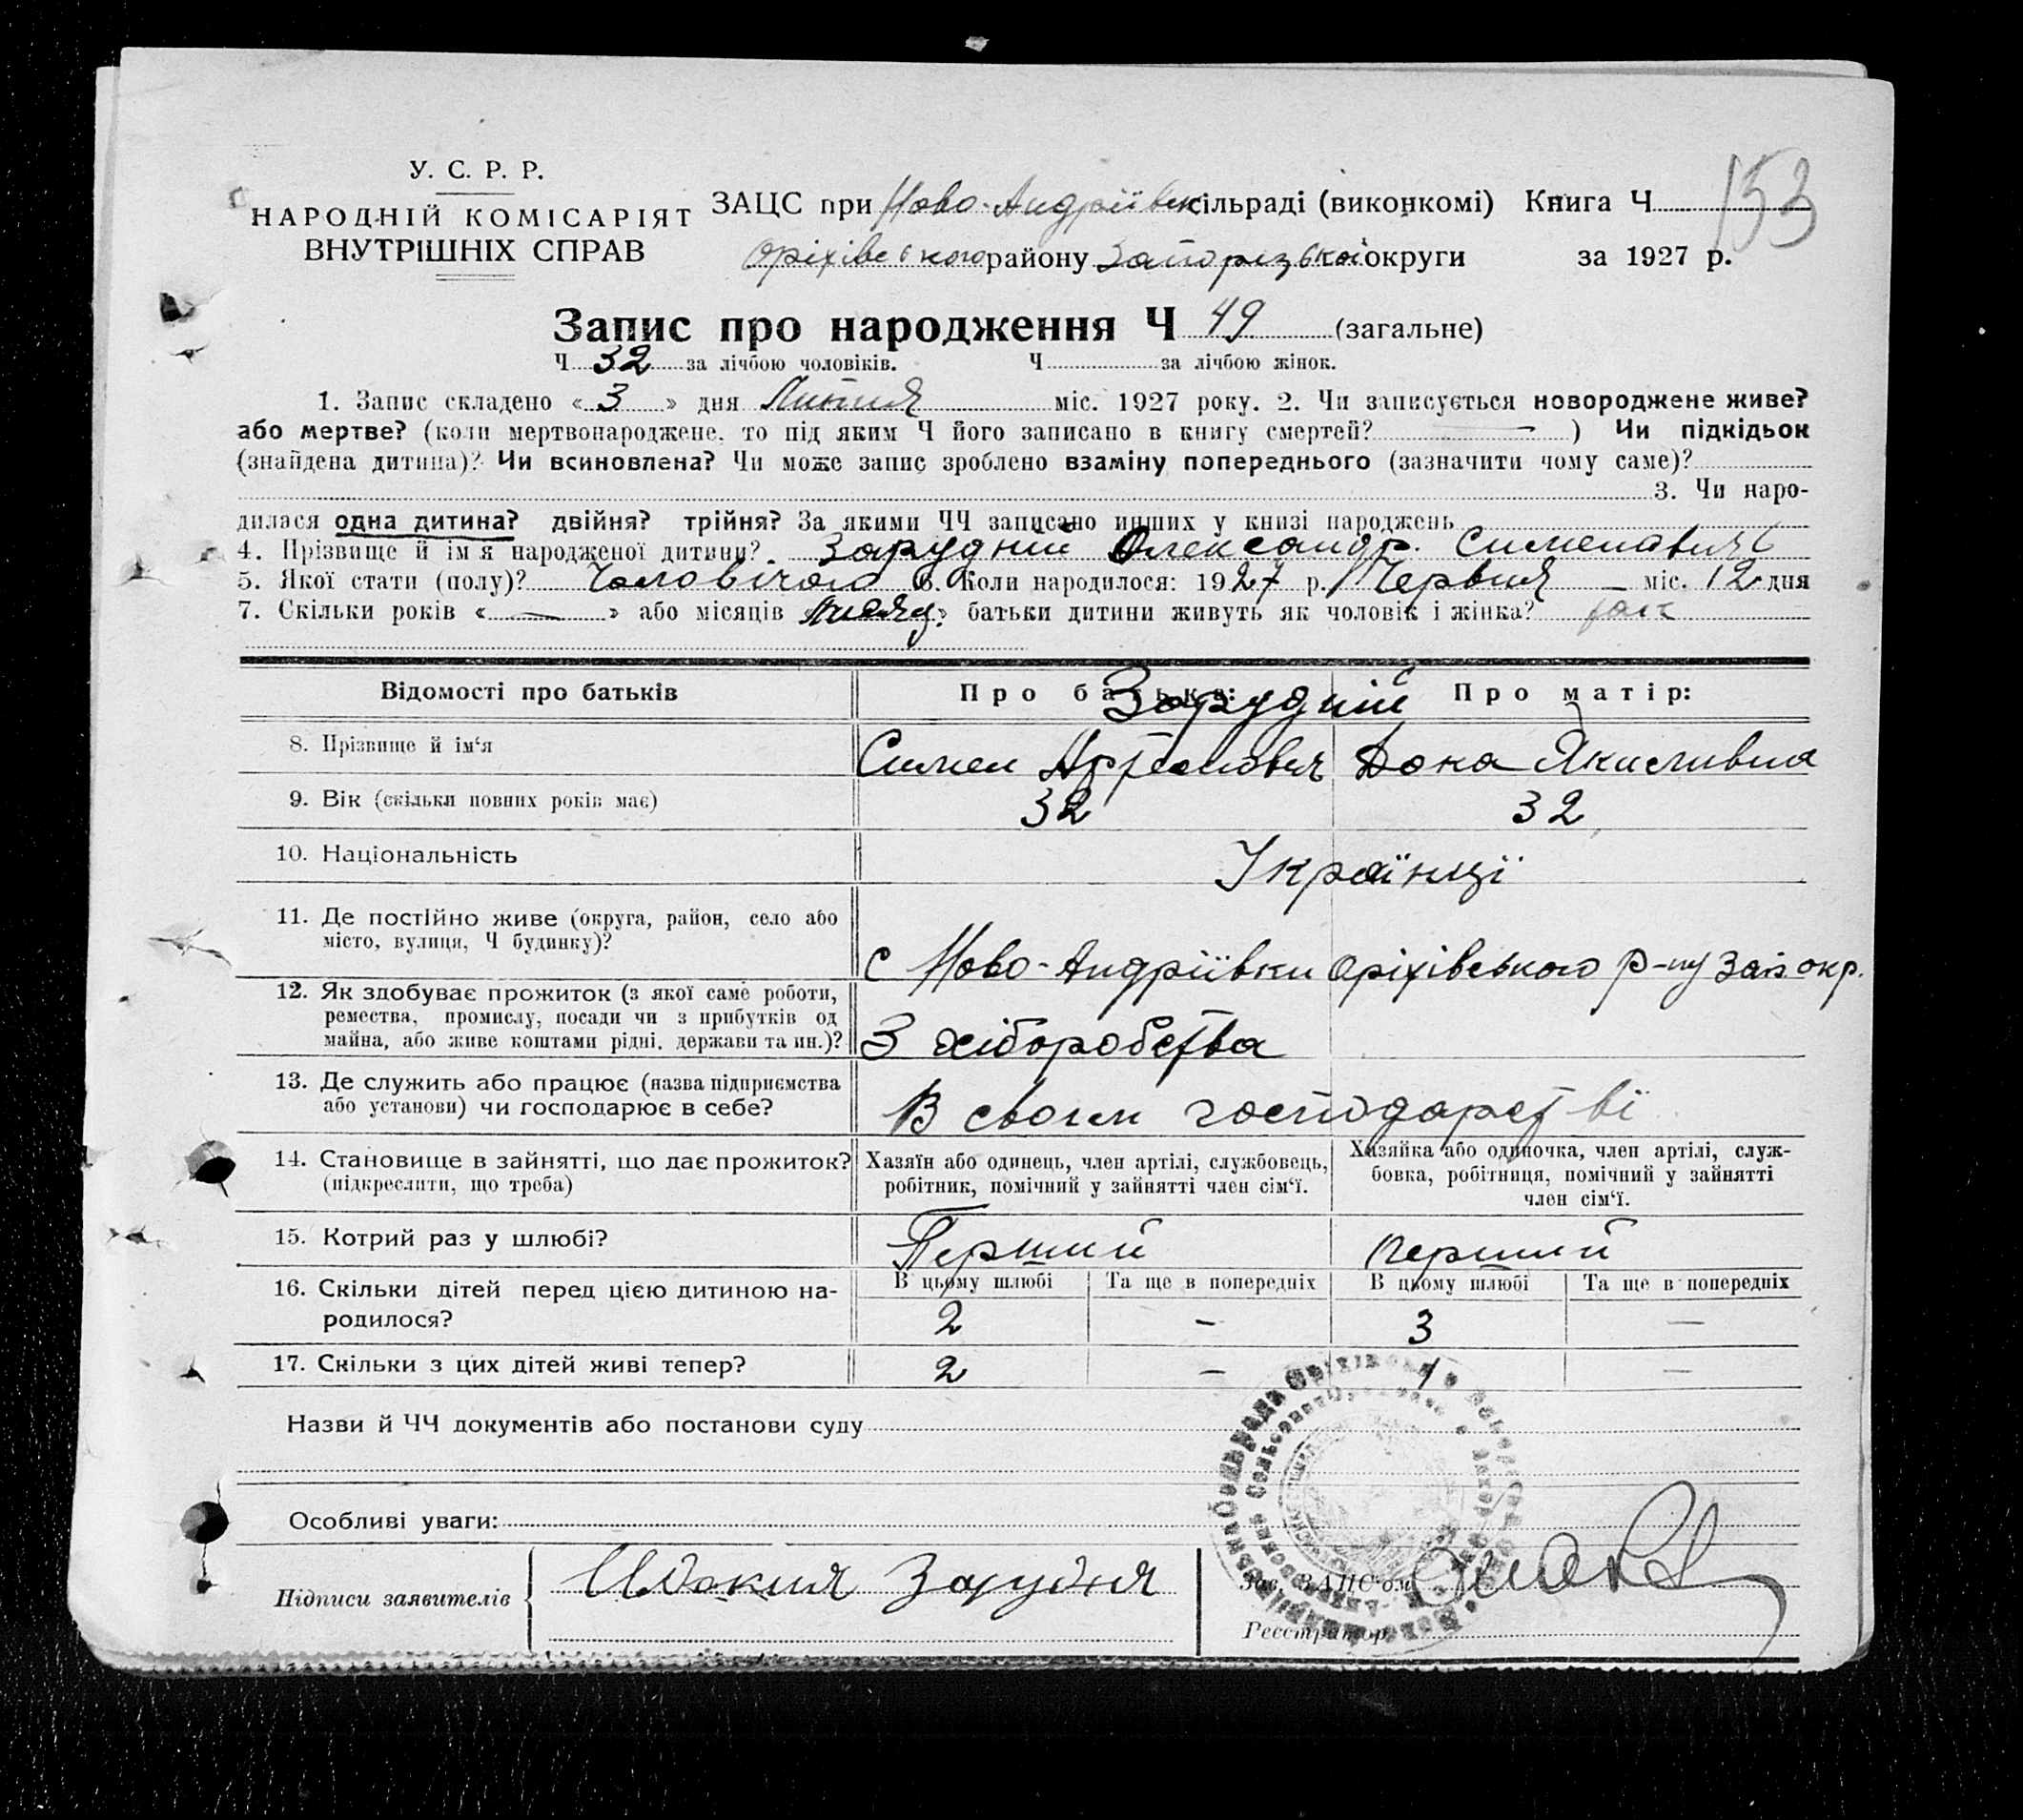 У. С. Р. Р.
НАРОДНІЙ КОМІСАРІЯТ
ВНУТРІШНІХ СПРАВ
153
ЗАЦС при Ново-Андріївск сільраді (виконкомі) Книга Ч
Оріхівського району Запорізької округи за 1927 р.
Запис про народження Ч 49 (загальне)
Ч 32 за лічбою чоловіків. Ч за лічбою жінок.
1. Запис складено « 3 » дня Липня міс. 1927 року. 2. Чи записується новороджене живе?
або мертве? (коли мертвонароджене, то під яким Ч його записано в книгу смертей? — ) Чи підкідьок
(знайдена дитина)? Чи всиновлена? Чи може запис зроблено взаміну попереднього (зазначити чому саме)?
3. Чи наро-
дилася одна дитина? двійня? трійня? За якими ЧЧ записано инших у книзі народжень
4. Прізвище й ім'я народженої дитини? Зарудний Олександр Сименович
5. Якої стати (полу)? Чоловічого 6. Коли народилося: 1927 р. Червня — міс. 12 дня
7. Скільки років « — » або місяців « » батьки дитини живуть як чоловік і жінка? так
Відомості про батьків Про батька: Про матір:
Зарудний
8. Прізвище й ім‘я Симен Артемович Якимивна
9. Вік (скільки повних років має) 32 32
10. Національність Українці
11. Де постійно живе (округа, район, село або
місто, вулиця, Ч будинку)?
с Ново-Андріївки Оріхівського р-ну Зап. окр.
12. Як здобуває прожиток (з якої саме роботи,
ремества, промислу, посади чи з прибутків од
майна, або живе коштами рідні, держави та ин.)?
З хліборобства
13. Де служить або працює (назва підприємства
або установи) чи господарює в себе?
В своєм господарстві
14. Становище в зайнятті, що дає прожиток?
(підкреслити, що треба)
Хазяїн або одинець, член артілі, службовець,
робітник, помічний у зайнятті член сім‘ї.
Хазяйка або одиночка, член артілі, служ-
бовка, робітниця, помічний у зайнятті
член сім‘ї.
15. Котрий раз у шлюбі? Перший перший
16. Скільки дітей перед цією дитиною на-
родилося?
В цьому шлюбі Та ще в попередніх В цьому шлюбі Та ще в попередніх
2 - 3 —
17. Скільки з цих дітей живі тепер? 2 - 1 —
Назви й ЧЧ документів або постанови суду
Особливі уваги:
Підписи заявителів Зарудня
Зав. ЗАЦС'ом
Реєстратор